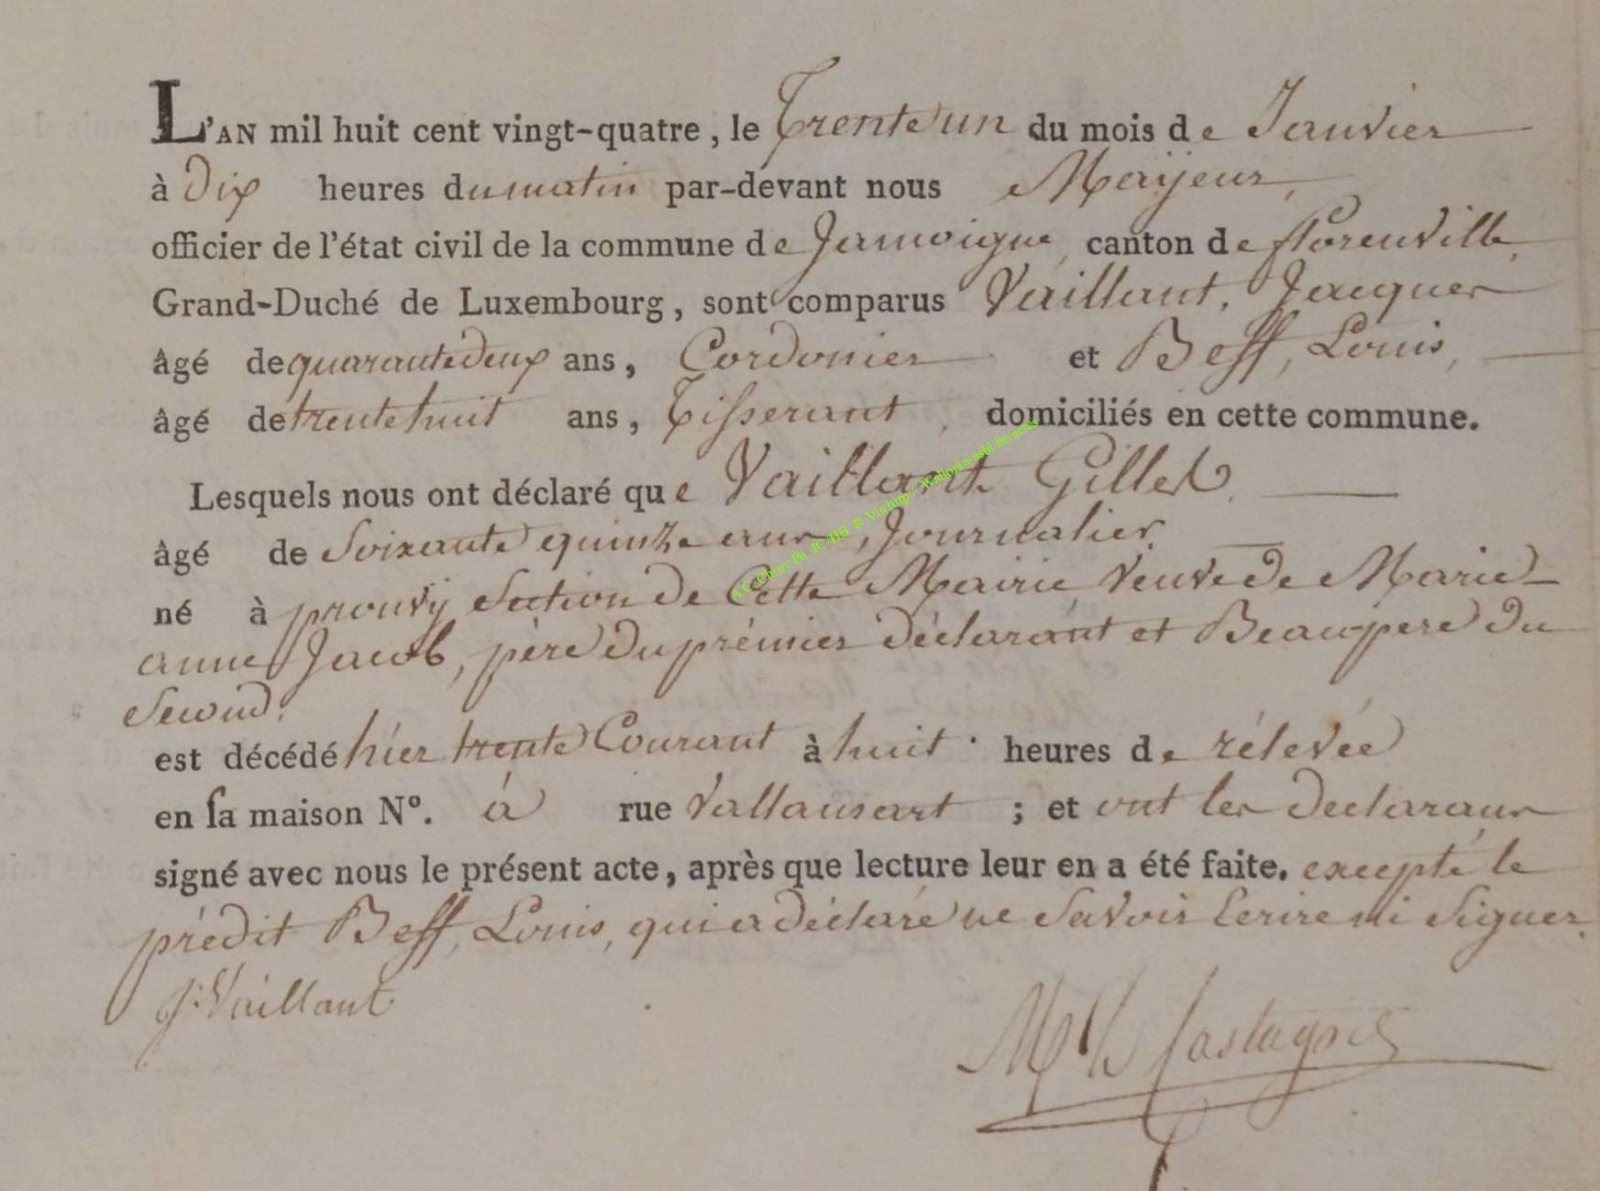 L'AN mil huit cent vingt-quatre, le Trente un du mois de Janvier
à Dix heures du matin par-devant nous Mayeur,
officier de l'état civil de la commune de Jamoigne, canton de florenville,
Grand-Duché de Luxembourg, sont comparus Vaillant, Jacques
âgé de quarante deux ans, Cordonier et Beff, Louis,
âgé de trente huit ans, Tisserant, domiciliés en cette commune.
Lesquels nous ont déclaré que Vaillant Gillet.
âgé de Soixante quinze ans, Journalier
né à prouvy Section de Cette Mairie, veuve de Marie
anne Jacob, père du prémier déclarant et Beaupere du
Second.
est décédé hier trente Courant à huit heures de rélevée
en sa maison N°. à rue Vallansart ; et ont les declarans
signé avec nous le présent acte, après que lecture leur en a été faite. excepté le
prédit Beff, Louis, qui a déclaré ne Savoir Ecrire ni Signer.
J. Vaillant